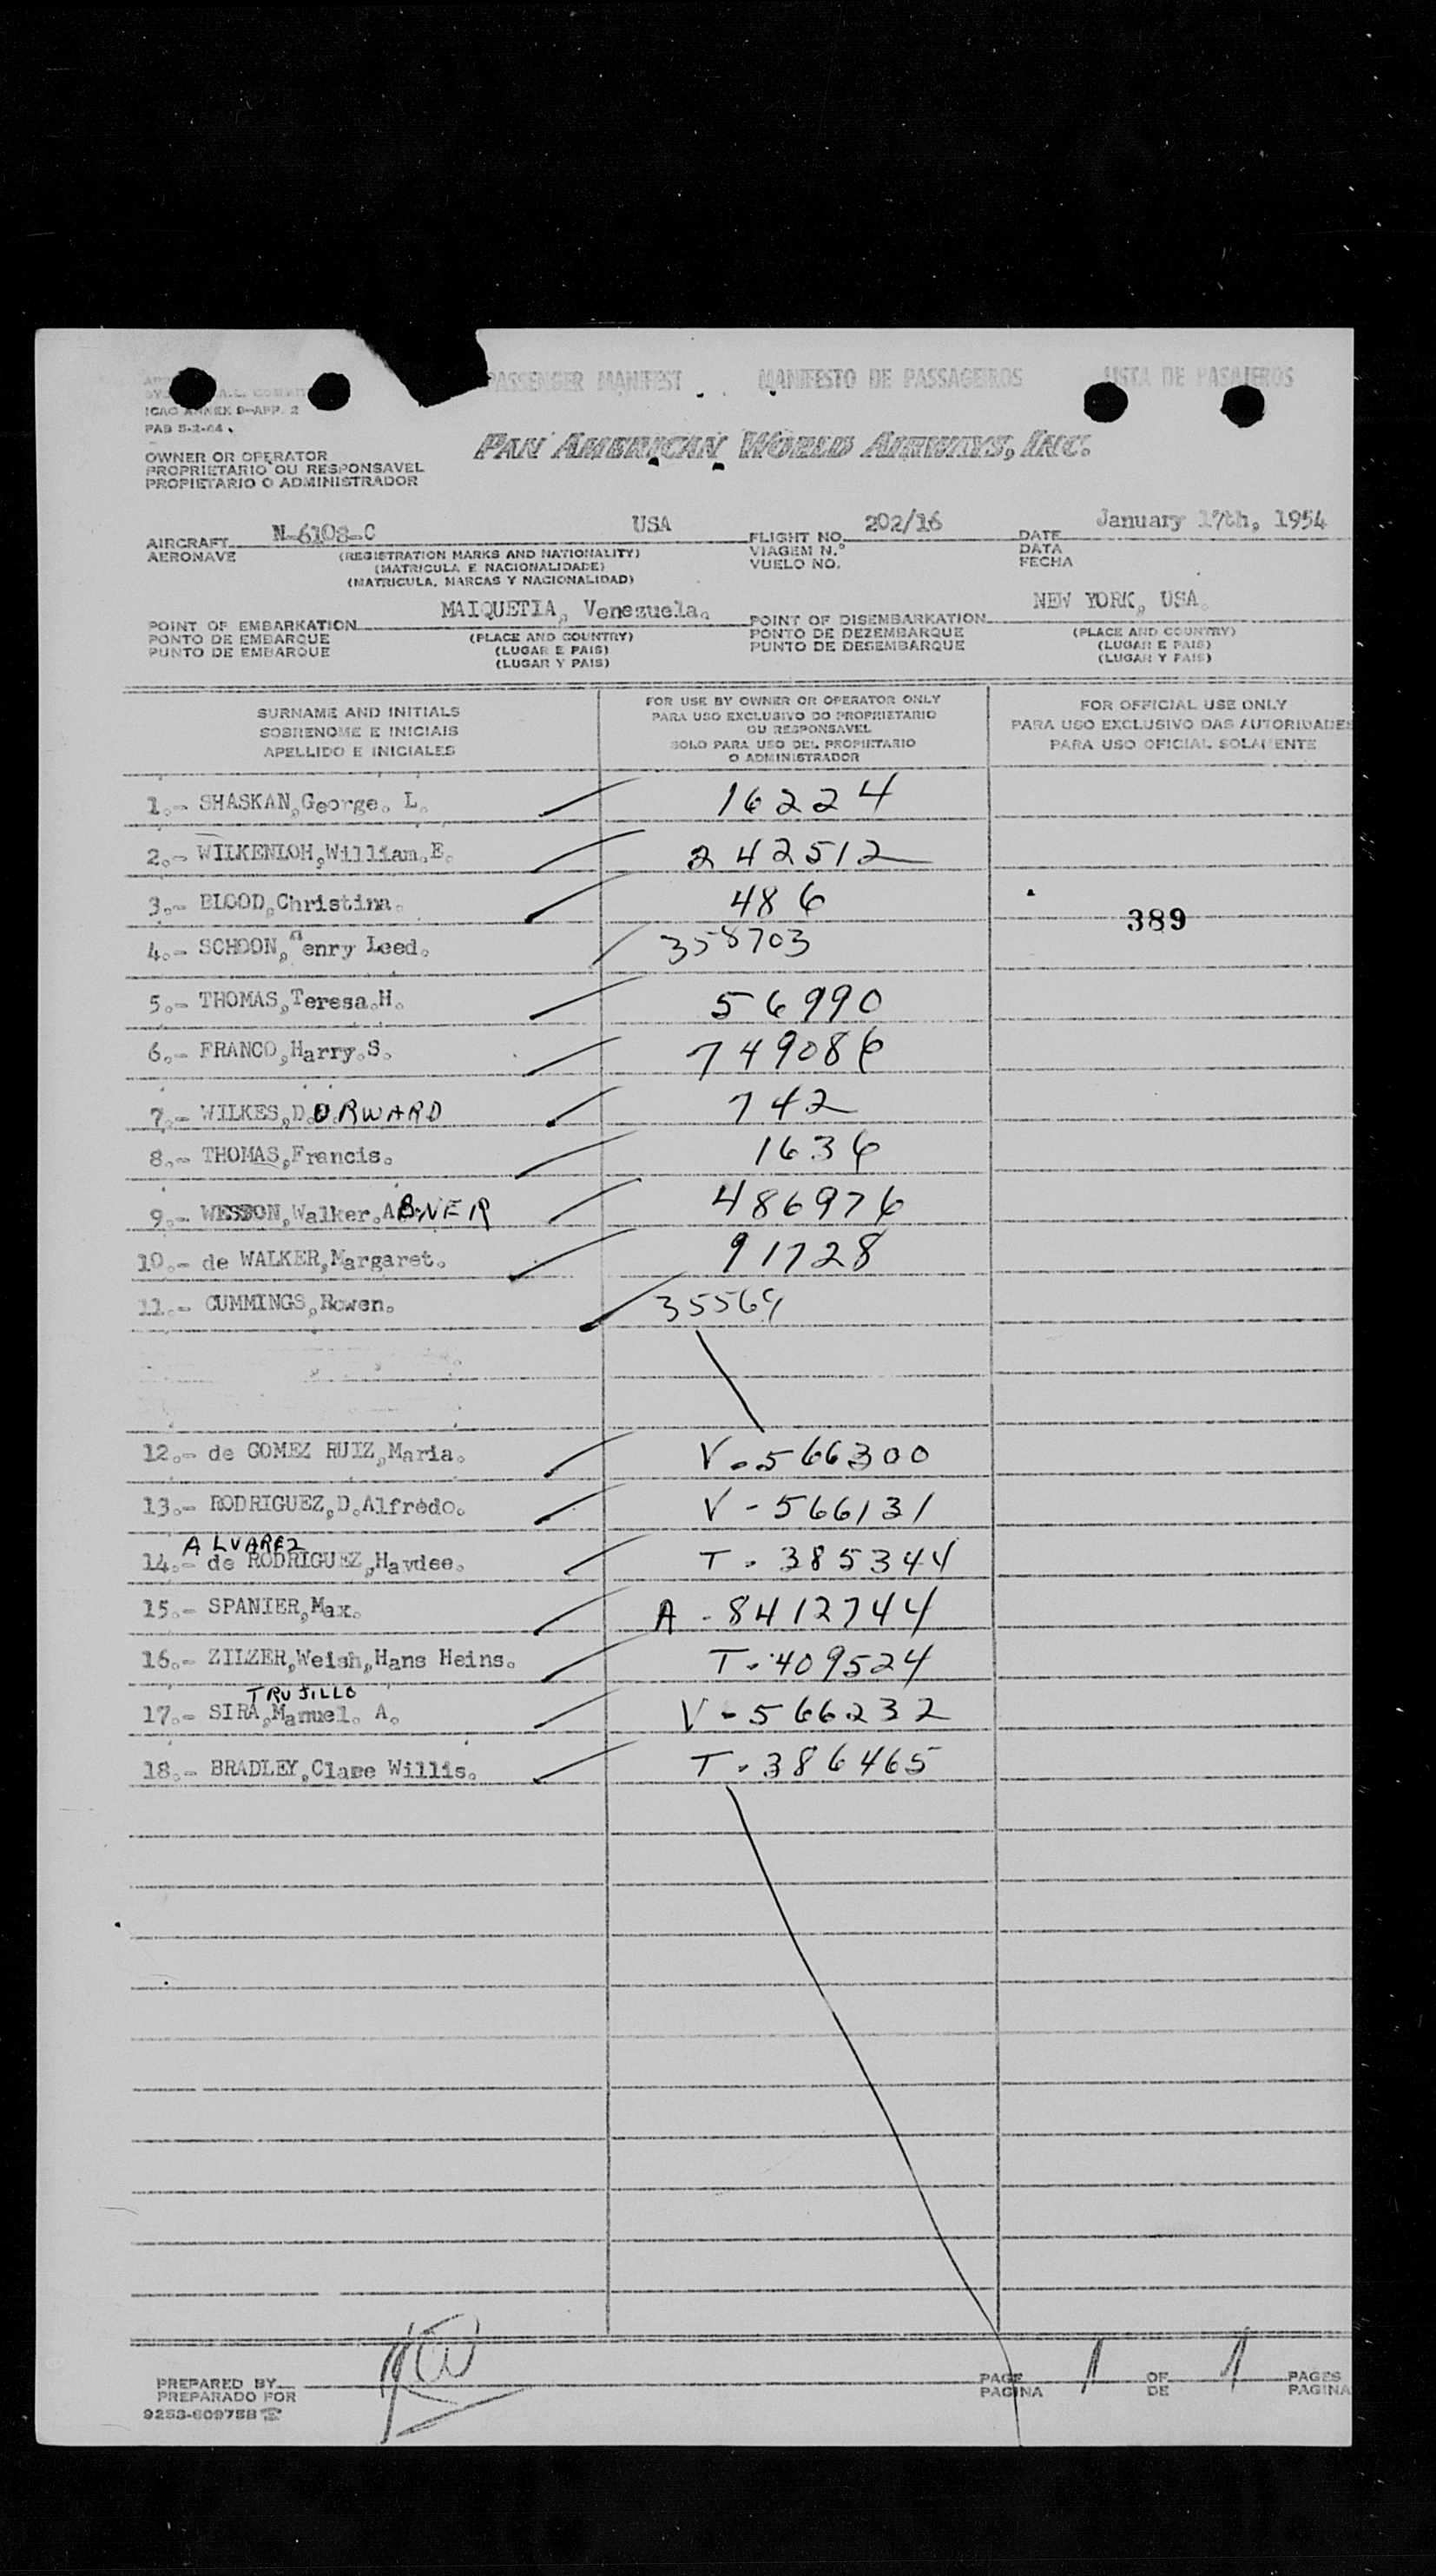 PASSENGER MANIFEST MANIFESTO DE PASSAGEIROS LISTA DE PASAJEROS
ICAO ANNEX 9-APP. 2
PAB 5-2-44
PAN AMERICAN WORLD AIRWAYS, INC.
OWNER OR OPERATOR
PROPRIETARIO OU RESPONSAVEL
PROPIETARIO O ADMINISTRADOR
AIRCRAFT N-6108-C USA FLIGHT NO. 202/16 DATE January 17th, 1954
AERONAVE (REGISTRATION MARKS AND NATIONALITY) VIAGEM N.º DATA
(MATRICULA E NACIONALIDADE) VUELO NO. FECHA
(MATRICULA, MARCAS Y NACIONALIDAD)
POINT OF EMBARKATION MAIQUETIA, Venezuela. POINT OF DISEMBARKATION NEW YORK, USA.
PONTO DE EMBARQUE (PLACE AND COUNTRY) PONTO DE DEZEMBARQUE (PLACE AND COUNTRY)
PUNTO DE EMBARQUE (LUGAR E PAIS) PUNTO DE DESEMBARQUE (LUGAR E PAIS)
(LUGAR Y PAIS) (LUGAR Y PAIS)
SURNAME AND INITIALS
SOBRENOME E INICIAIS
APELLIDO E INICIALES
FOR USE BY OWNER OR OPERATOR ONLY
PARA USO EXCLUSIVO DO PROPRIETARIO
OU RESPONSAVEL
SOLO PARA USO DEL PROPIETARIO
O ADMINISTRADOR
FOR OFFICIAL USE ONLY
PARA USO EXCLUSIVO DAS AUTORIDADES
PARA USO OFICIAL SOLAMENTE
1.- SHASKAN,George. L. 16224
2.- WILKENLOH,William.E. 242512
3.- BLOOD,Christina. 486
389
4.- SCHOON,Henry Leed. 358703
5.- THOMAS,Teresa.H. 56990
6.- FRANCO,Harry.S. 749086
7.- WILKES,D.ORWARD 742
8.- THOMAS,Francis. 1636
9.- WESTON,Walker.ABNER 486976
10.- de WALKER,Margaret. 91728
11.- CUMMINGS,Rowen. 35569
12.- de GOMEZ RUIZ,Maria. V-566300
13.- RODRIGUEZ,D.Alfredo. V-566131
ALVAREZ
14.- de RODRIGUEZ,Haydee. T-385344
15.- SPANIER,Max. A-8412744
16.- ZILZER,Weish,Hans Heins. T-409524
TRUJILLO
17.- SIRA,Manuel. A. V-566232
18.- BRADLEY,Clare Willis. T-386465
PREPARED BY PAGE 1 OF 1 PAGES
PREPARADO POR PAGINA DE PAGINA
9253-609758